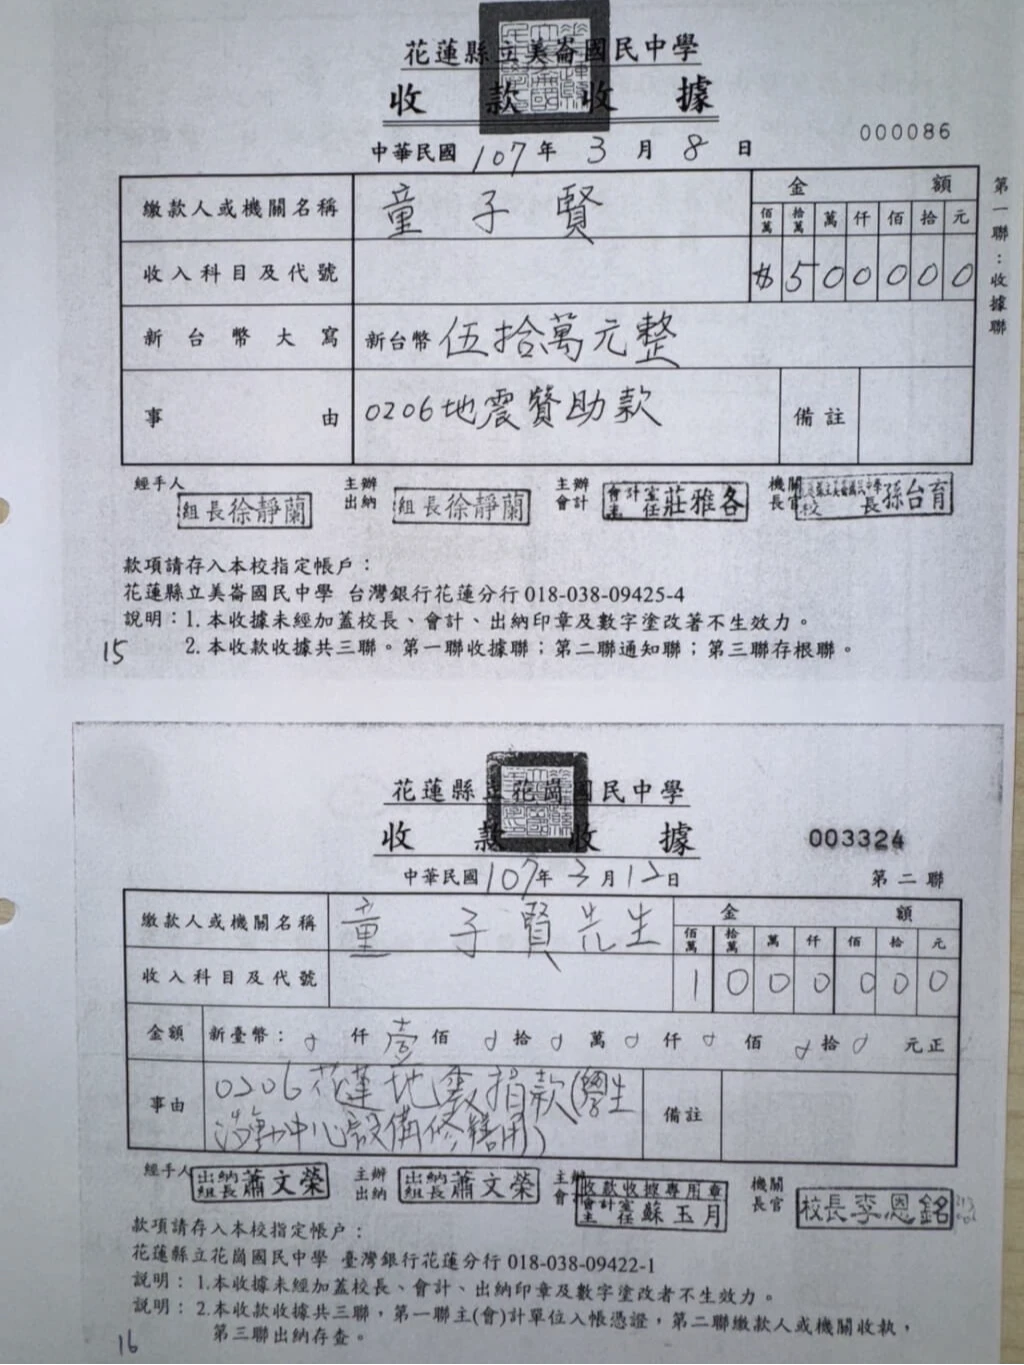 花蓮縣立美崙國民中學
收款收據
000086
中華民國 107年 3 月 8 日
第一聯：收據聯
繳款人或機關名稱 童子賢 金額
佰萬 拾萬 萬 仟 佰 拾 元
收入科目及代號 $ 5 0 0 0 0 0
新台幣大寫 新台幣 伍拾萬元整
事由 0206地震贊助款 備註
經手人 組長徐靜蘭 主辦出納 組長徐靜蘭 主辦會計 會計室主任莊雅各 機關長官 校長孫台育
款項請存入本校指定帳戶：
花蓮縣立美崙國民中學 台灣銀行花蓮分行 018-038-09425-4
說明：1. 本收據未經加蓋校長、會計、出納印章及數字塗改著不生效力。
2. 本收款收據共三聯。第一聯收據聯；第二聯通知聯；第三聯存根聯。
15
花蓮縣立花崗國民中學
收款收據
003324
中華民國 107年 3月 12日
第二聯
繳款人或機關名稱 童子賢先生 金額
佰萬 拾萬 萬 仟 佰 拾 元
收入科目及代號 1 0 0 0 0 0 0
金額 新臺幣： 仟 壹 佰 拾 萬 仟 佰 拾 元正
事由 0206花蓮地震捐款(學生
活動中心設備修繕用) 備註
經手人 出納組長蕭文榮 主辦出納 出納組長蕭文榮 主辦會計 收款收據專用章 會計室主任蘇玉月 機關長官 校長李恩銘
款項請存入本校指定帳戶：
花蓮縣立花崗國民中學 臺灣銀行花蓮分行 018-038-09422-1
說明： 1.本收據未經加蓋校長、會計、出納印章及數字塗改者不生效力。
說明： 2.本收款收據共三聯，第一聯主(會)計單位入帳憑證，第二聯繳款人或機關收執，
第三聯出納存查。
16